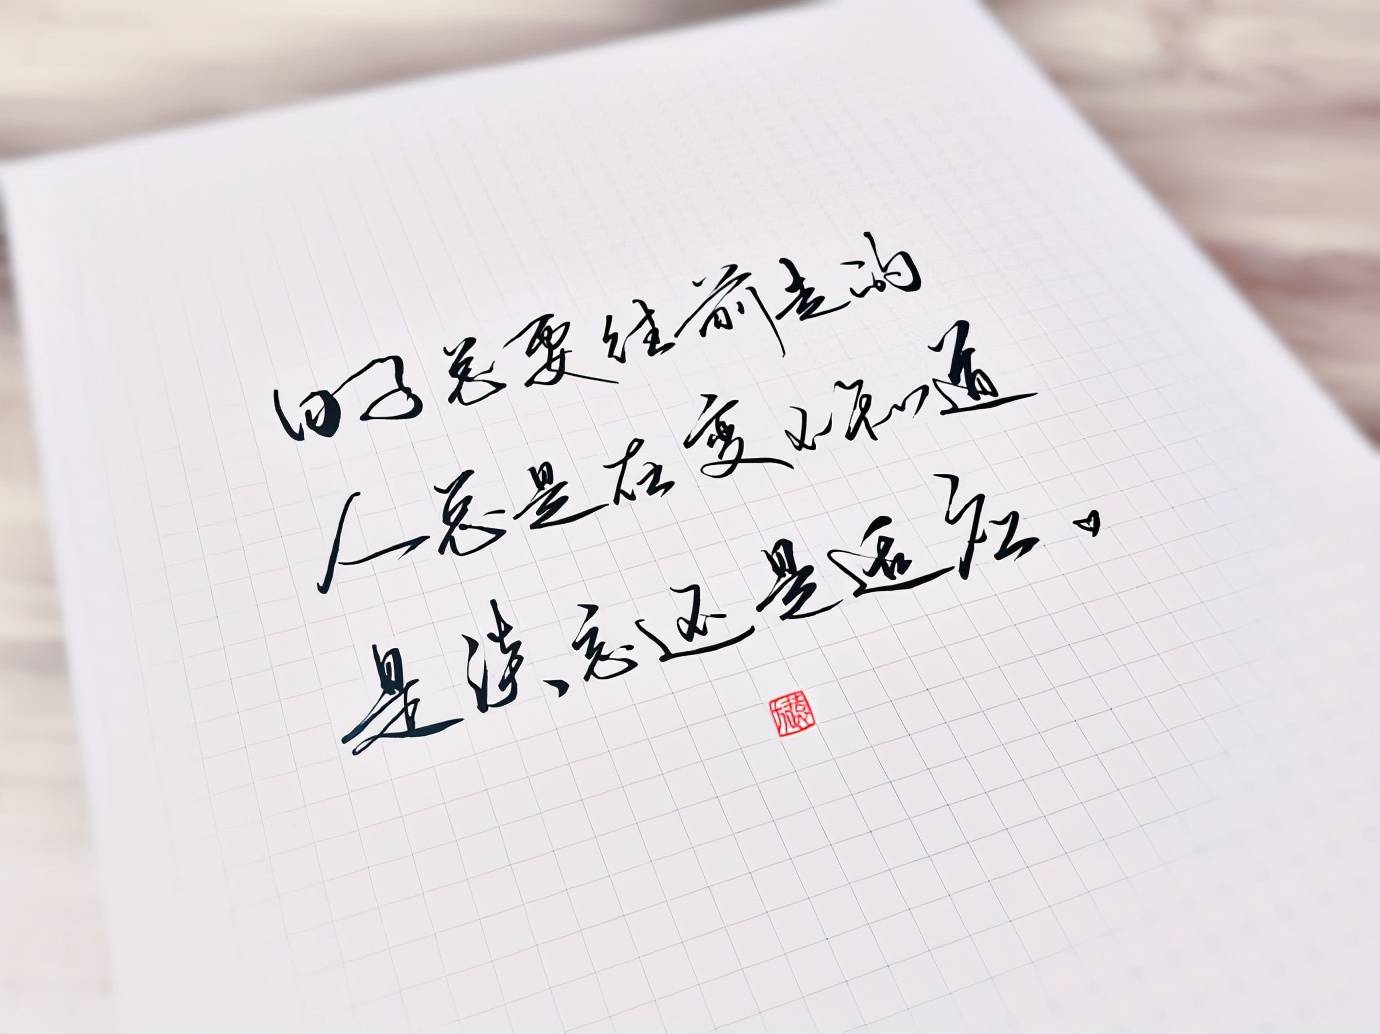 日子总要往前走的
人总是在变不知道
是遗忘还是适应。